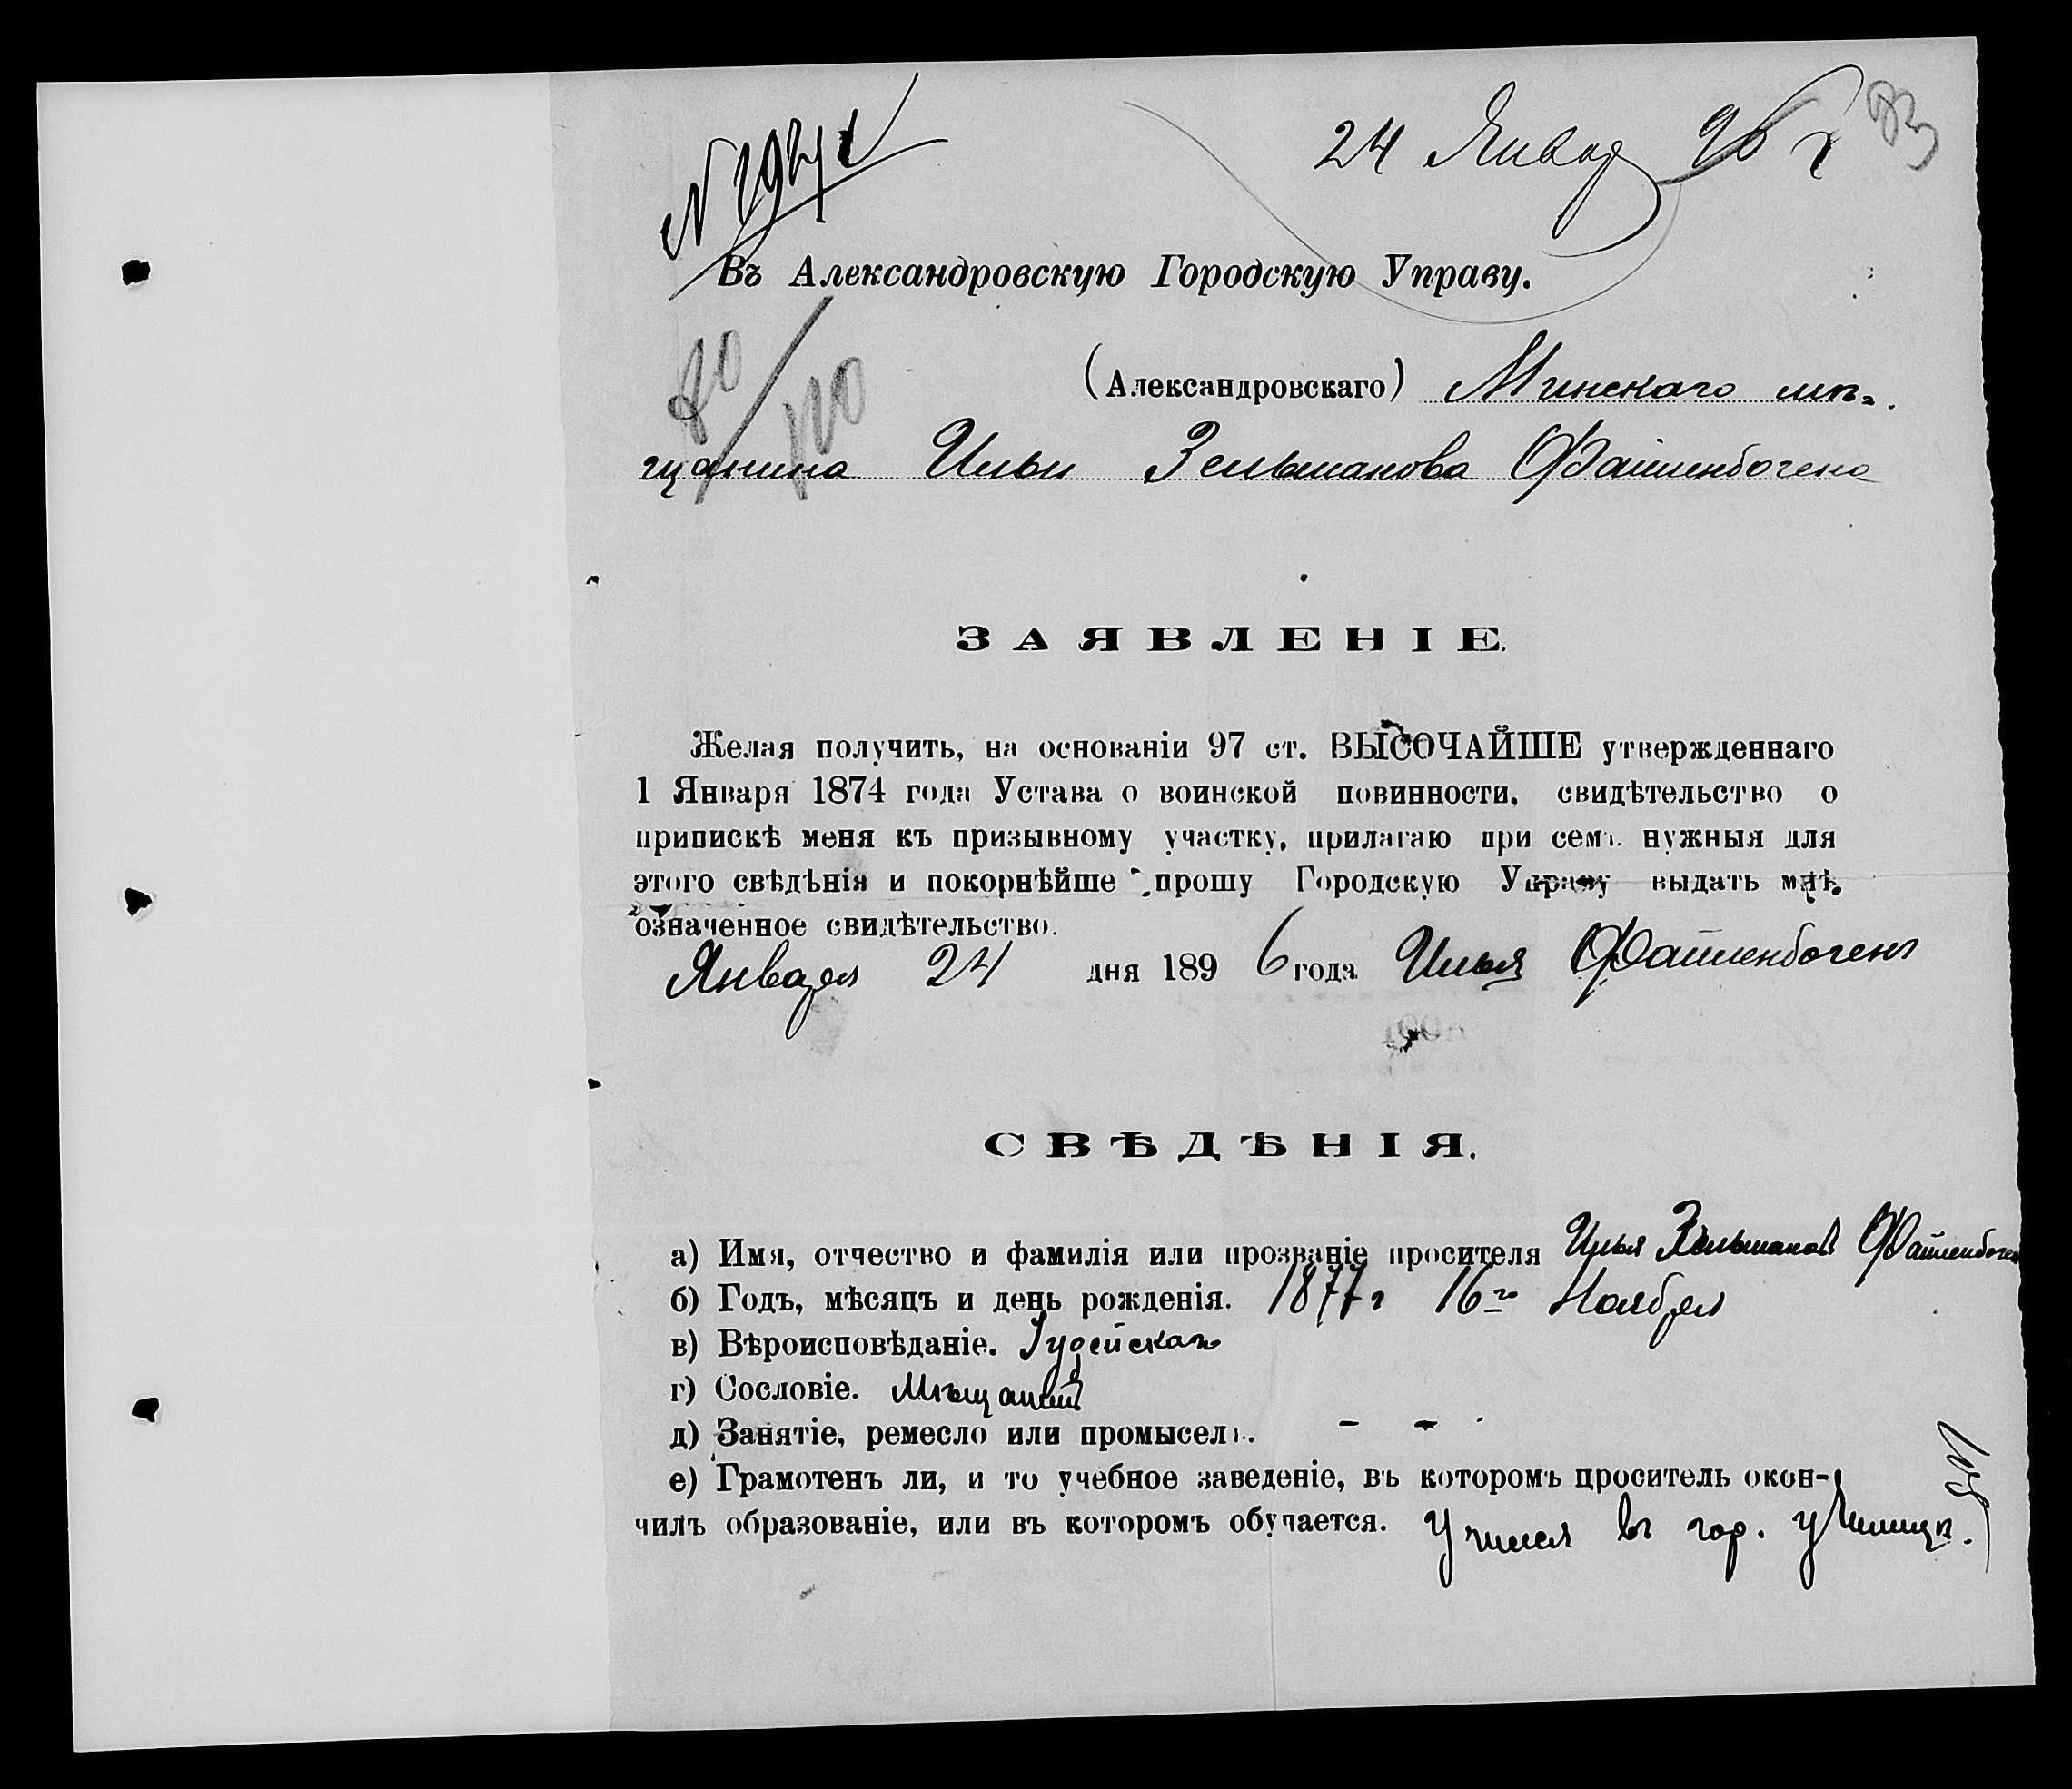 24 Январ 96 г 83
Въ Александровскую Городскую Управу.
(Александровскаго) Минскаго мѣ-
щанина Ильи Зельманова Файленбогена
ЗАЯВЛЕНІЕ.
Желая получить, на основаніи 97 ст. ВЫСОЧАЙШЕ утвержденнаго
1 Января 1874 года Устава о воинской повинности, свидѣтельство о
припискѣ меня къ призывному участку, прилагаю при семъ нужныя для
этого свѣдѣнія и покорнѣйше прошу Городскую Управу выдать мнѣ
означенное свидѣтельство.
Января 24 дня 1896 года Илья Файленбогенъ
СВѢДѢНІЯ.
а) Имя, отчество и фамилія или прозваніе просителя Илья Зельмановъ Файленбоген
б) Годъ, мѣсяцъ и день рожденія. 1877 г 16го Ноября
в) Вѣроисповѣданіе. Іудейскаго
г) Сословіе. Мѣщанинъ
д) Занятіе, ремесло или промыселъ. - -
е) Грамотенъ ли, и то учебное заведеніе, въ которомъ проситель окон-
чилъ образованіе, или въ которомъ обучается. Учился въ гор. училищѣ.